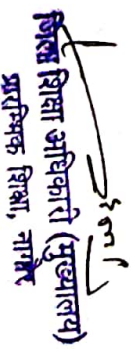 जिला शिक्षा अधिकारी (मुख्यालय)
प्रारम्भिक शिक्षा, नागौर